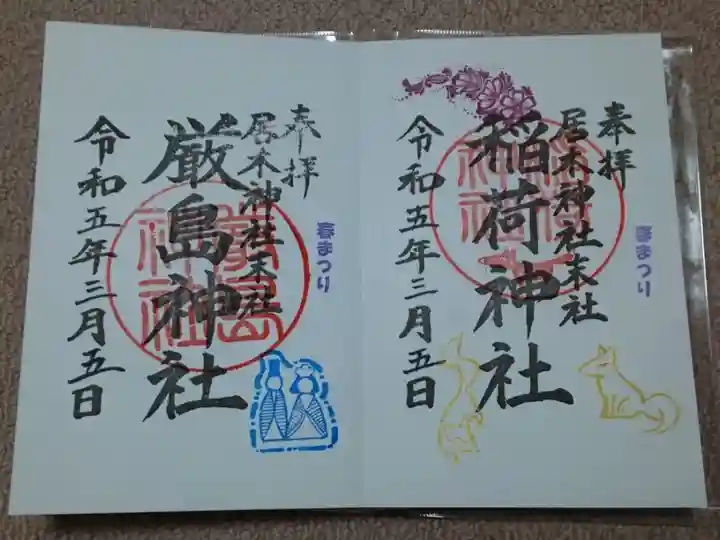 奉拝
稲荷神社
居木神社末社
春まつり
稲荷神社
令和五年三月五日
奉拝
厳島神社
居木神社末社
春まつり
厳島神社
令和五年三月五日